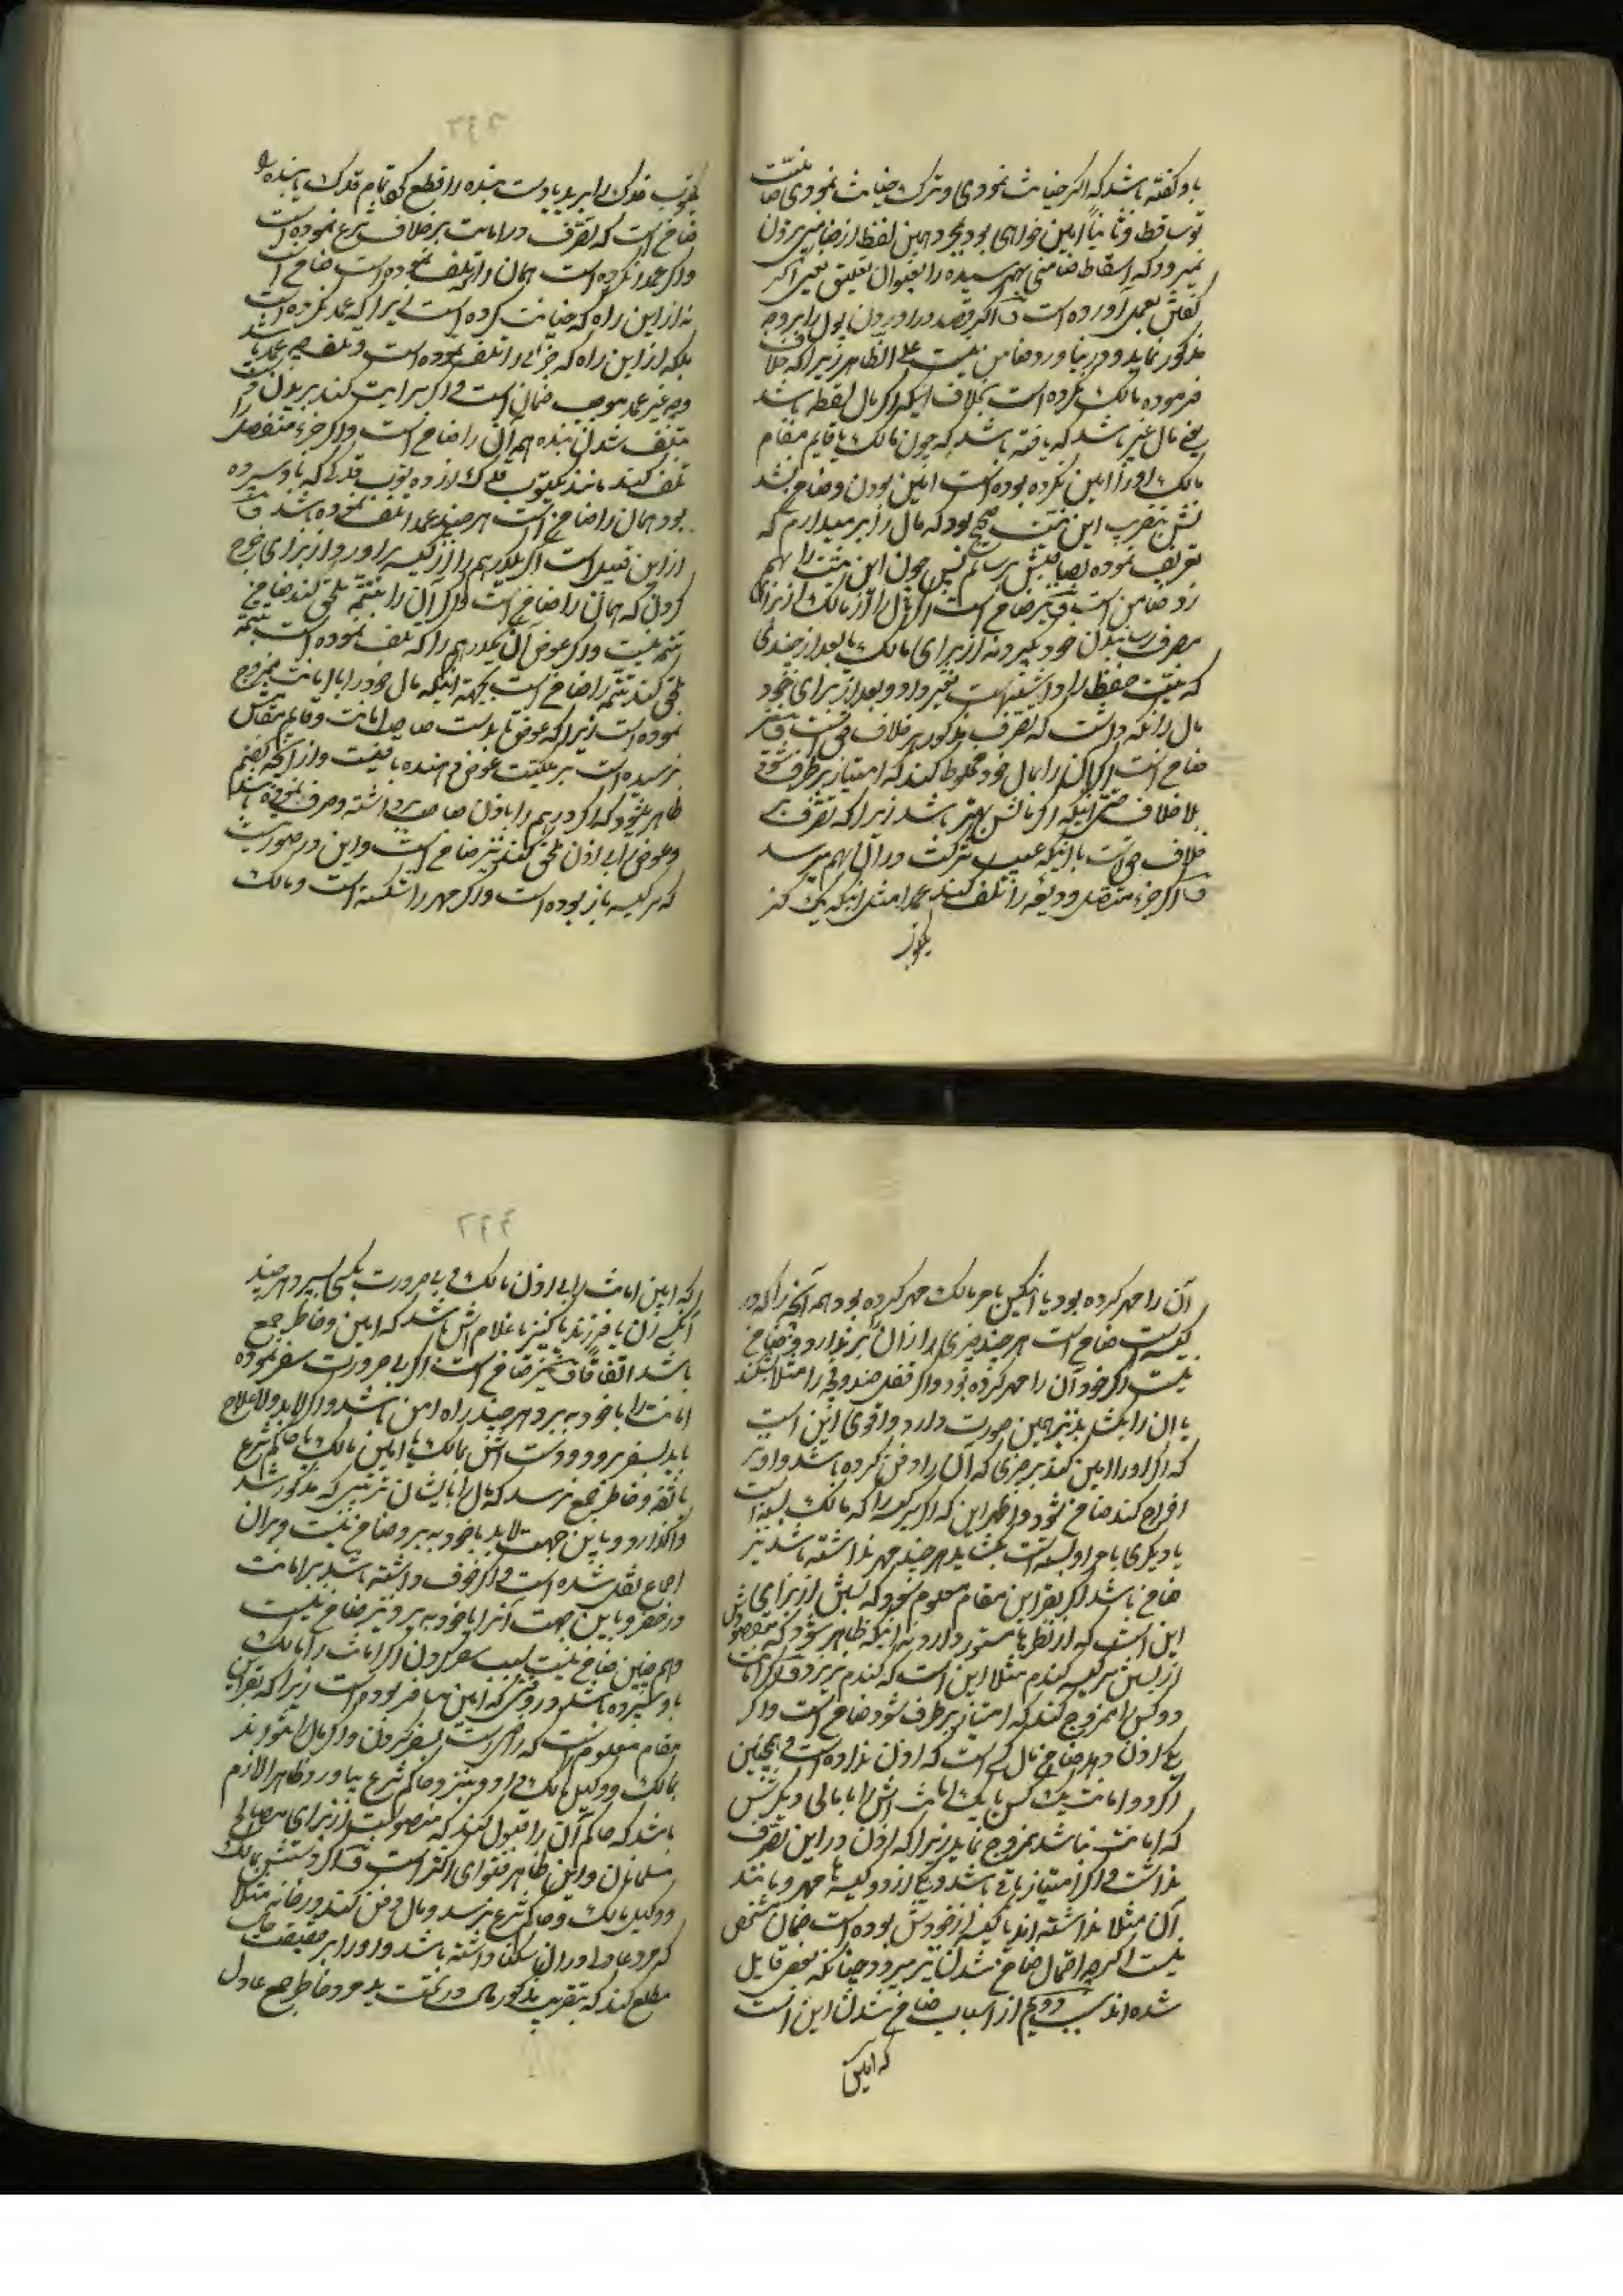 باو گفته باشد که اگر خیانت نمودی و ترک خیانت نمودی ضامنیت
تو ساقط و ثانیاً امین خواهی بود بمجرد همین لفظ از ضامنی بیرون
نمیرود که اسقاط ضامنی بهم رسیده را بعنوان تعلیق یعنی اگر
گفتن بعمل آورده است و اگر قصد در آوردن پول را بر وجه
مذکور نماید و در نیاورد ضامن نیست علی الظاهر زیرا که خلاف
فرموده مالک نکرده است بخلاف اینکه اگر مال لقطه باشد
یعنی مال غیر باشد که یافته باشد که چون مالک یا قایم مقام
مالک او را امین نکرده بوده است امین بودن و ضامن نشد
نش بتقریب این نیت صحیح بود که مال را بر میدارم که
تعریف نموده بصاحبش برسانم پس چون این نیت را بهم
زد ضامن است و نیز ضامن است اگر مال را از مالک از برای
بمصرف رسانیدن خود بگیرد نه از برای مالک یا بعد از چندی
که نیت حفظ را داشته است تغییر داد و بعد از برای خود
مال را نگه داشت که تصرف مذکور بر خلاف حق است و نیز
ضامن است اگر آن را بمال خود مخلوط کند که امتیاز برطرف شود
بلا خلاف حتی اینکه اگر مالش بهتر باشد زیرا که تصرف بر
خلاف حق است با اینکه عیب شرکت در آن بهم میرسد
و اگر جزء متصل ودیعه را تلف کند عمداً مثل اینکه یک گز
یکتوب
یکتوب فدک را ببرد یا دست بنده را قطع کند تمام فدک یا بنده را
ضامن است که تصرف در امانت بر خلاف شرع نموده است
و اگر عمداً نکرده است همان را که تلف نموده است ضامن است
نه از این راه که خیانت کرده است زیرا که عمد نکرده است
بلکه از این راه که جزئی را تلف نموده است و تلف چه عمد باشد
و چه غیر عمد موجب ضمان است و اگر سرایت کند بریدن دست
بتلف شدن بنده همه آن را ضامن است و اگر جزء منفصل را
تلف کند مانند یکتوب فدک از ده توب فدکی که باو سپرده
بود همان را ضامن است هر چند عمداً تلف نموده باشد و
از این قبیل است اگر یکدرهم را از کیسه برآورد از برای خرج
کردن که همان را ضامن است و اگر آن را بتتمه ملحق کند ضامن
تتمه نیست و اگر عوض آن یکدرهم را که تلف نموده است بتتمه
ملحق کند تتمه را ضامن است بجهة اینکه مال خود را بمال امانت ممزوج
نموده است زیرا که عوض تا بدست صاحب امانت و قایم مقامش
نرسیده است بر ملکیت عوض دهنده باقیست و از آنچه گفتم
ظاهر میشود که اگر درهم را باذن صاحب برداشته و صرف نموده باشد
و عوض را بی اذن ملحق کند نیز ضامن است و این در صورتیست
که سر کیسه باز بوده است و اگر مهر را شکسته است و مالک
آن را مهر کرده بود یا امین بامر مالک مهر کرده بود همه آنچه را که در
کیسه است ضامن است هر چند چیزی را از آن بر ندارد و ضامن
نیست اگر خود آن را مهر کرده بود و اگر قفل صندوقچه را مثلا بشکند
یا آن را بگشاید نیز همین صورت دارد و اقوی این است
که اگر او را امین کند بر چیزی که آن را دفن کرده باشد و او بر
اخراج کند ضامن شود و اظهر این که اگر سر کیسه را که مالک بسته است
یا دیگری بامر او بسته است بگشاید هر چند مهر نداشته باشد نیز
ضامن باشد اگر بقراین مقام معلوم شود که بستن از برای
این است که از نظرها مستور دارد نه اینکه ظاهر شود که مقصودش
از بستن سر کیسه گندم مثلا این است که گندم نریزد و اگر امانت
دو کس را ممزوج کند که امتیاز برطرف شود ضامن است و اگر
یکی اذن دهد ضامن مال کسی است که اذن نداده است و همچنین
اگر دو امانت یک کس یا یکی امانت اش را با مالی دیگرش
که امانت نباشد ممزوج نماید زیرا که اذن در این تصرف
نداشت و اگر امتیاز باقی باشد و یکی از دو کیسه ها مهر و مانند
آن مثلا نداشته اند یا کیسه از خودش بوده است ضمان مشخص
نیست اگر چه احتمال ضامن شدن نیز میرود چنانکه بعضی قایل
شده اند سبب دویم از اسباب ضامن شدن این است
که امین
که امین امانت را بی اذن مالک و بی ضرورت بکسی بسپرد هر چند
آنکس زن یا فرزند یا کنیز یا غلام اش باشد که امین و خاطر جمع
باشد اتفاقاً و نیز ضامن است اگر بی ضرورت سفر نموده
امانت را با خود ببرد هر چند راه امن باشد و اگر لابد و لاعلاج
باید بسفر برود و دست اش بمالک یا امین مالک یا حاکم شرع
یا ثقه و خاطر جمع نرسد که مال را بایشان بترتیبی که مذکور شد
واگذارد و باین جهت لابد با خود ببرد ضامن نیست و بر آن
اجماع نقل شده است و اگر خوف داشته باشد بر امانت
در حضر و باین جهت آنرا با خود ببرد نیز ضامن نیست
و هم چنین ضامن نیست بسبب سفر کردن اگر امانت را مالک
باو سپرده باشد در وقتی که امین مسافر بوده است زیرا که بقراین
مقام معلوم است که راضی است بسفر کردن و اگر مال را نتواند
بمالک و وکیل مالک داد و نیز و حاکم شرع بیاورد ظاهر لازم
باشد که حاکم آن را قبول کند که منصوب است از برای مصالح
مسلمانان و این ظاهر فتوای اکثر است و اگر دستش بمالک
و وکیل مالک و حاکم شرع نرسد و مال را دفن کند در خانه مثلا
که مرد عادل در آن سکنا داشته باشد و او را بر حقیقت حال
مطلع کند که بتقریب مذکور مال در تحت ید مرد خاطر جمع عادل